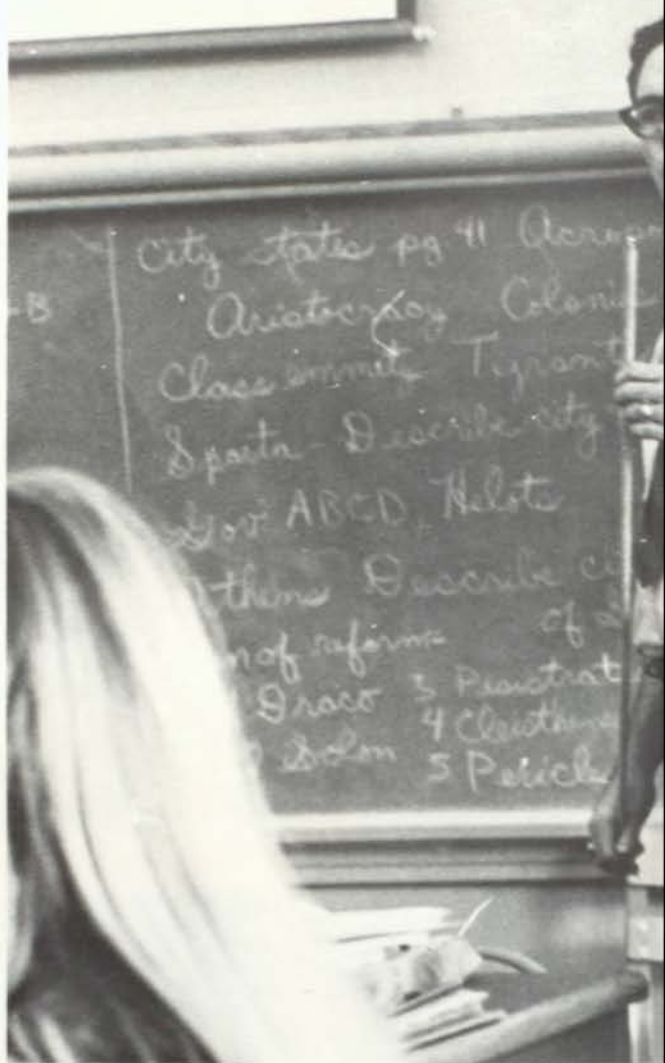 -B
City states pg 41 Acrop
Aristocracy Colonie
Class enmity Tyrant
Sparta - Describe city
Gov ABCD, Helots
thens Describe ci
of reform of
Draco 3 Pisistrat
Solon 4 Cleisthene
5 Pericl